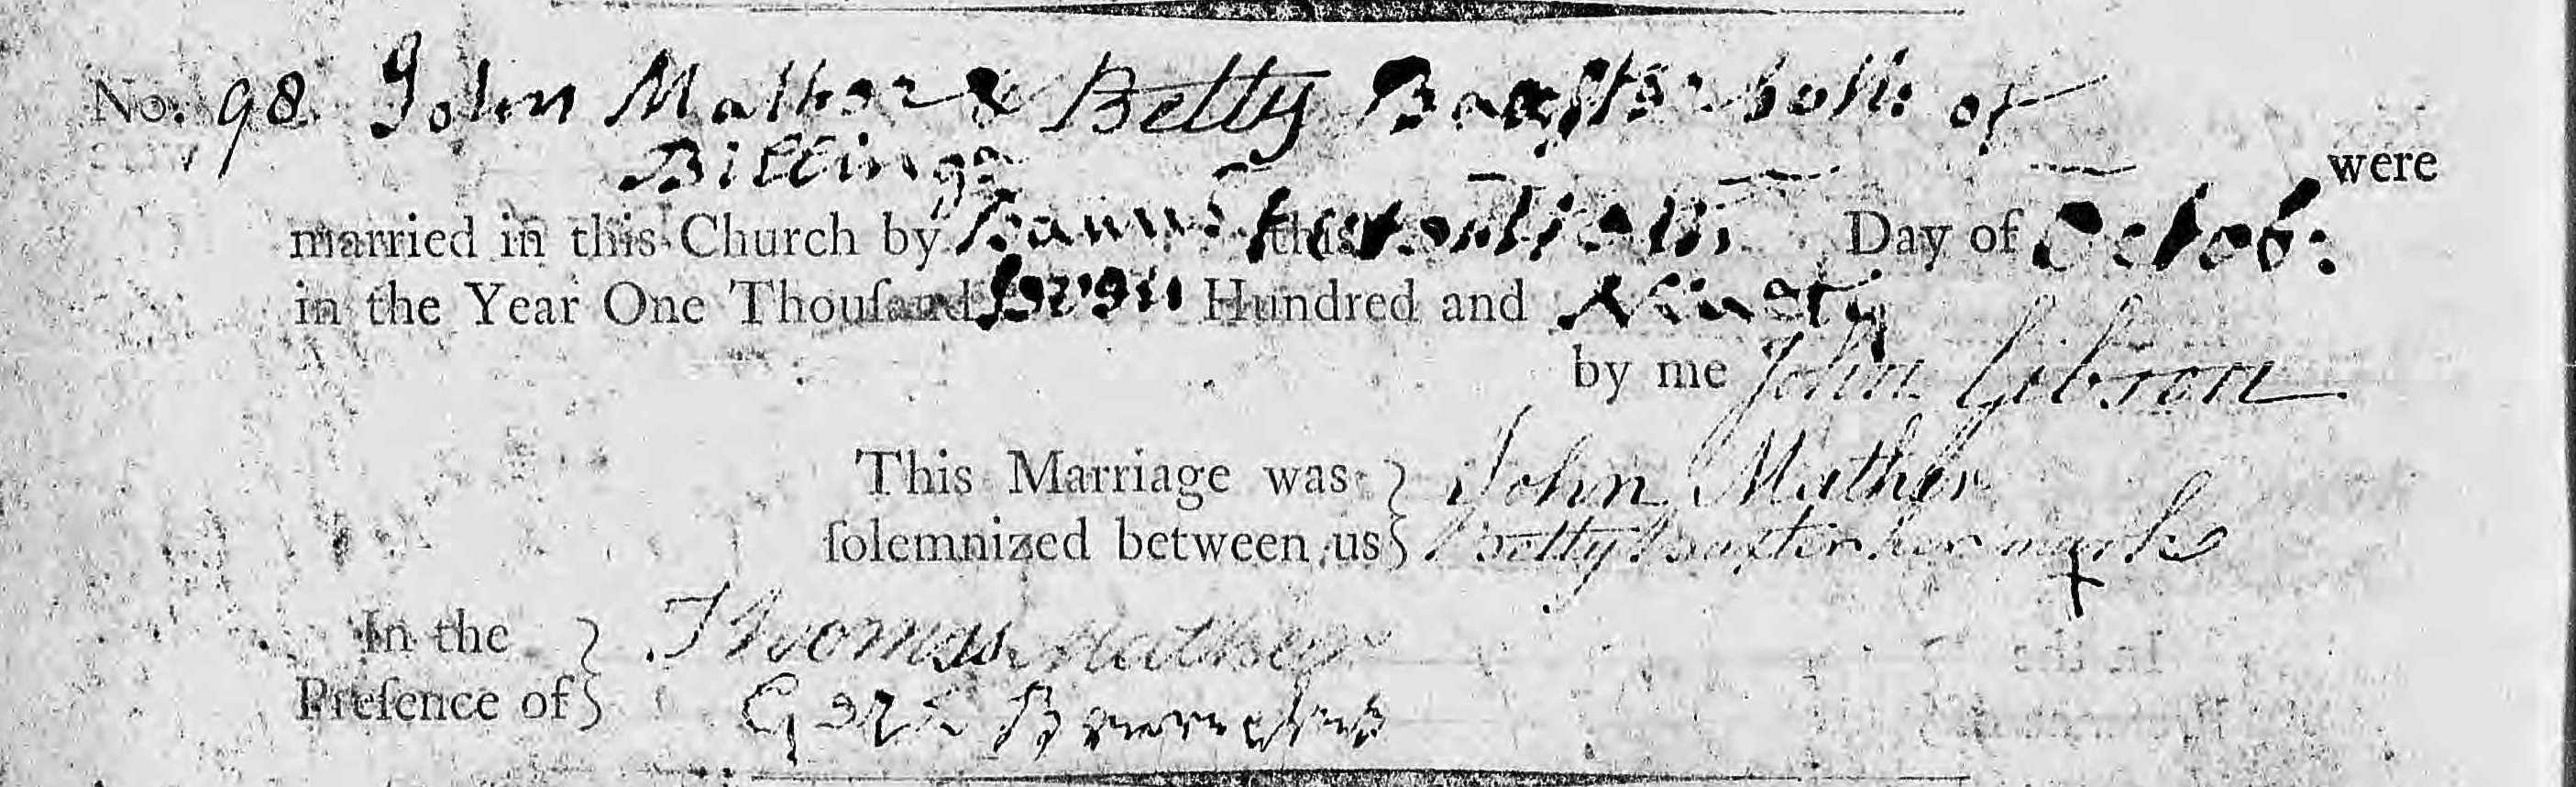 No. 98. John Mather & Betty Baxter both of
Billinge were
married in this Church by Banns this twentieth Day of Octob:
in the Year One Thouſand Seven Hundred and Ninety
by me John Gibson
This Marriage was } John Mather
ſolemnized between us } Betty Baxter her mark
In the } Thoomas Mather
Preſence of }